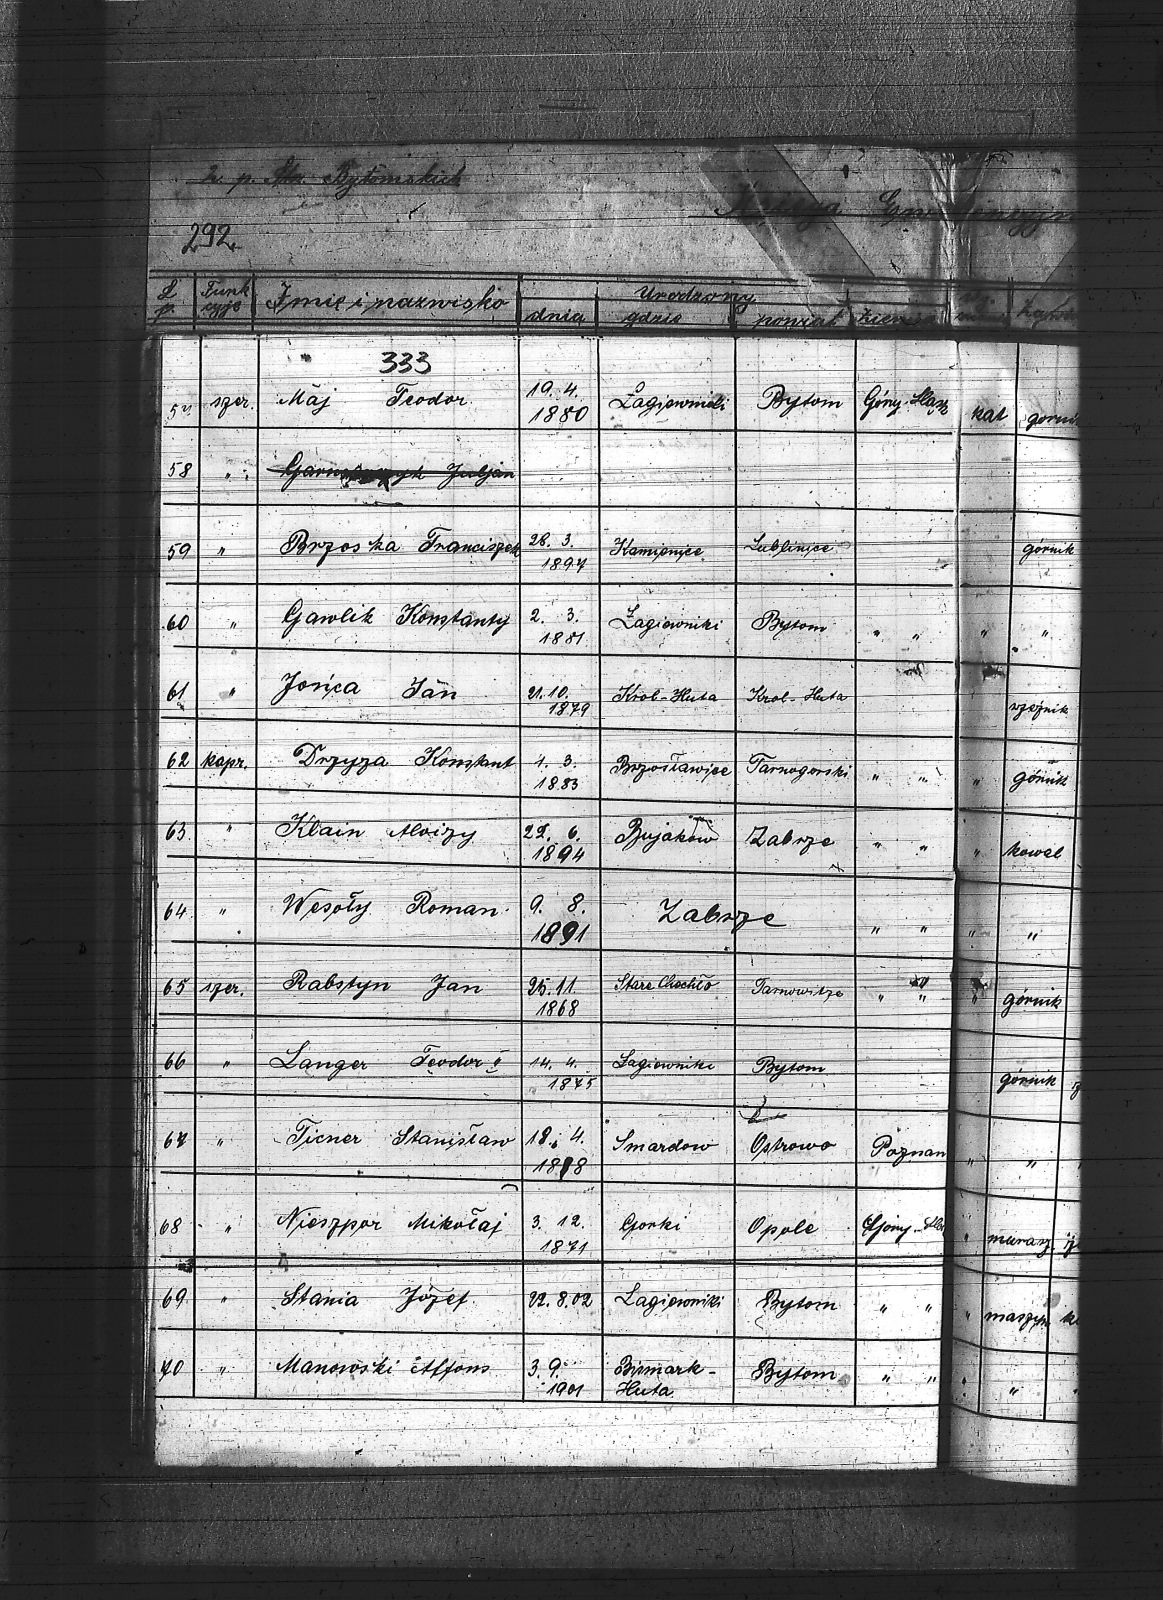 p. Str. Bytomskich
Księga Ewidencyjn
292.
L. p. Funk cyje Imię i nazwisko Urodzony
dnia gdzie powiat ziemia
333
57 szer. Maj Teodor 19. 4. 1880 Łagiewniki Bytom Górny-Śląsk kat górnik
58 " Julian
59 " Brzoska Franciszek 28. 3. 1897 Kamienice Lublinice górnik
60 " Gawlik Konstanty 2. 3. 1881 Łagiewniki Bytom " " " "
61 " Jońca Jan 21. 10. 1879 Król-Huta Król-Huta rzeźnik
62 kapr. Drzyza Konstant 4. 3. 1883 Brzosławice Tarnogorski " " " górnik
63 " Klain Aloizy 22. 6. 1894 Bujaków Zabrze " " " kowal
64 " Wesoły Roman 9. 8. 1891 Zabrze " " " "
65 szer. Rabstyn Jan 25. 11. 1868 Stare Chechło Tarnowitze " " " górnik
66 " Langer Teodor II 14. 4. 1875 Łagiewniki Bytom górnik
67 " Ticner Stanisław 18. 4. 1888 Smardow Ostrowo Poznan " "
68 " Nieszpor Mikołaj 3. 12. 1871 Gorki Opole Górny-Śla " murarz
69 " Stania Józef 22. 8. 02 Łagiewniki Bytom " " " maszyn
70 " Manowski Alfons 3. 9. 1901 Bismark-Huta Bytom " " " "